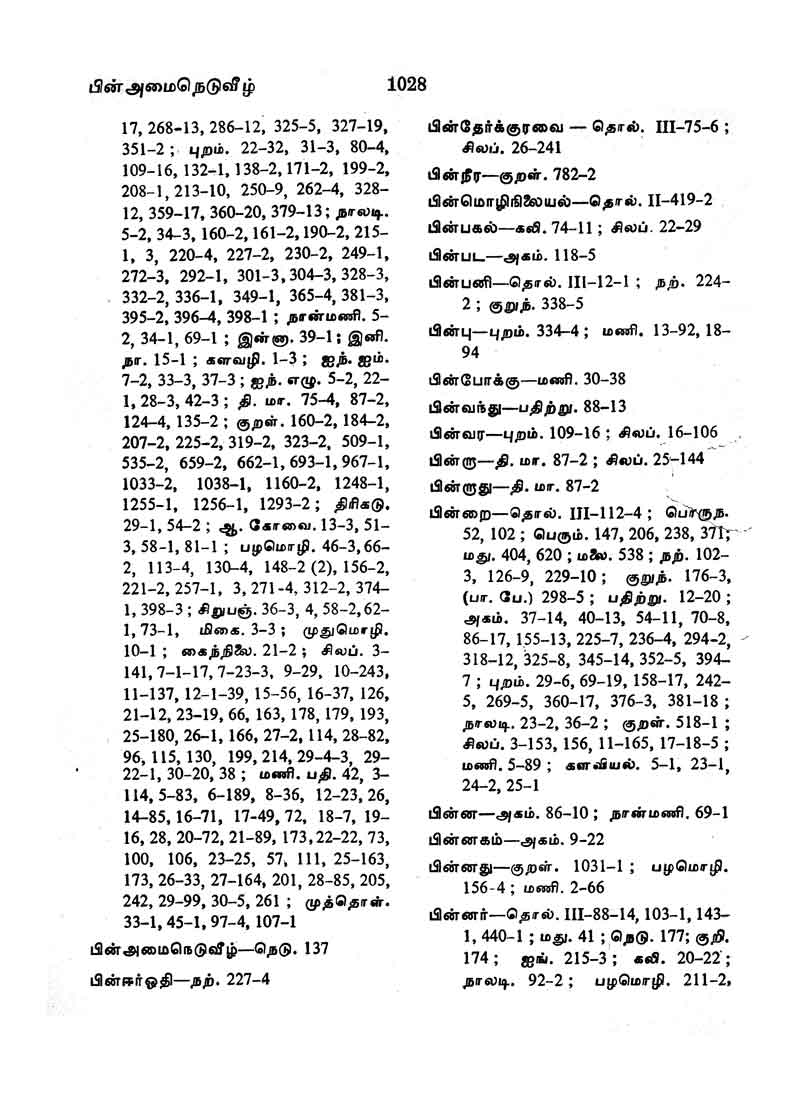 பின்அமைநெடுவீழ்
1028
17, 268-13, 286-12, 325-5, 327-19,
351-2 ; புறம். 22-32, 31-3, 80-4,
109-16, 132-1, 138-2, 171-2, 199-2,
208-1, 213-10, 250-9, 262-4, 328-
12, 359-17, 360-20, 379-13 ; நாலடி.
5-2, 34-3, 160-2, 161-2, 190-2, 215-
1, 3, 220-4, 227-2, 230-2, 249-1,
272-3, 292-1, 301-3, 304-3, 328-3,
332-2, 336-1, 349-1, 365-4, 381-3,
395-2, 396-4, 398-1 ; நான்மணி. 5-
2, 34-1, 69-1 ; இன்னா. 39-1 ; இனி.
நா. 15-1 ; களவழி. 1-3 ; ஐந். ஐம்.
7-2, 33-3, 37-3 ; ஐந். எழு. 5-2, 22-
1, 28-3, 42-3 ; தி. மா. 75-4, 87-2,
124-4, 135-2 ; குறள். 160-2, 184-2,
207-2, 225-2, 319-2, 323-2, 509-1,
535-2, 659-2, 662-1, 693-1, 967-1,
1033-2, 1038-1, 1160-2, 1248-1,
1255-1, 1256-1, 1293-2 ; திரிகடு.
29-1, 54-2 ; ஆ. கோவை. 13-3, 51-
3, 58-1, 81-1 ; பழமொழி. 46-3, 66-
2, 113-4, 130-4, 148-2 (2), 156-2,
221-2, 257-1, 3, 271-4, 312-2, 374-
1, 398-3 ; சிறுபஞ். 36-3, 4, 58-2, 62-
1, 73-1, மிகை. 3-3 ; முதுமொழி.
10-1 ; கைந்நிலை. 21-2 ; சிலப். 3-
141, 7-1-17, 7-23-3, 9-29, 10-243,
11-137, 12-1-39, 15-56, 16-37, 126,
21-12, 23-19, 66, 163, 178, 179, 193,
25-180, 26-1, 166, 27-2, 114, 28-82,
96, 115, 130, 199, 214, 29-4-3, 29-
22-1, 30-20, 38 ; மணி. பதி. 42, 3-
114, 5-83, 6-189, 8-36, 12-23, 26,
14-85, 16-71, 17-49, 72, 18-7, 19-
16, 28, 20-72, 21-89, 173, 22-22, 73,
100, 106, 23-25, 57, 111, 25-163,
173, 26-33, 27-164, 201, 28-85, 205,
242, 29-99, 30-5, 261 ; முத்தொள்.
33-1, 45-1, 97-4, 107-1
பின்அமைநெடுவீழ்—நெடு. 137
பின்ஈர்ஓதி—நற். 227-4
பின்தேர்க்குரவை — தொல். III-75-6 ;
சிலப். 26-241
பின்நீர—குறள். 782-2
பின்மொழிநிலையல்—தொல். II-419-2
பின்பகல்—கலி. 74-11 ; சிலப். 22-29
பின்பட—அகம். 118-5
பின்பனி—தொல். III-12-1 ; நற். 224-
2 ; குறுந். 338-5
பின்பு—புறம். 334-4 ; மணி. 13-92, 18-
94
பின்போக்கு—மணி. 30-38
பின்வந்து—பதிற்று. 88-13
பின்வர—புறம். 109-16 ; சிலப். 16-106
பின்றா—தி. மா. 87-2 ; சிலப். 25-144
பின்றாது—தி. மா. 87-2
பின்றை—தொல். III-112-4 ; பொருந.
52, 102 ; பெரும். 147, 206, 238, 371;
மது. 404, 620 ; மலை. 538 ; நற். 102-
3, 126-9, 229-10 ; குறுந். 176-3,
(பா. பே.) 298-5 ; பதிற்று. 12-20 ;
அகம். 37-14, 40-13, 54-11, 70-8,
86-17, 155-13, 225-7, 236-4, 294-2,
318-12, 325-8, 345-14, 352-5, 394-
7 ; புறம். 29-6, 69-19, 158-17, 242-
5, 269-5, 360-17, 376-3, 381-18 ;
நாலடி. 23-2, 36-2 ; குறள். 518-1 ;
சிலப். 3-153, 156, 11-165, 17-18-5 ;
மணி. 5-89 ; களவியல். 5-1, 23-1,
24-2, 25-1
பின்ன—அகம். 86-10 ; நான்மணி. 69-1
பின்னகம்—அகம். 9-22
பின்னது—குறள். 1031-1 ; பழமொழி.
156-4 ; மணி. 2-66
பின்னர்—தொல். III-88-14, 103-1, 143-
1, 440-1 ; மது. 41 ; நெடு. 177; குறி.
174 ; ஐங். 215-3 ; கலி. 20-22 ;
நாலடி. 92-2 ; பழமொழி. 211-2,